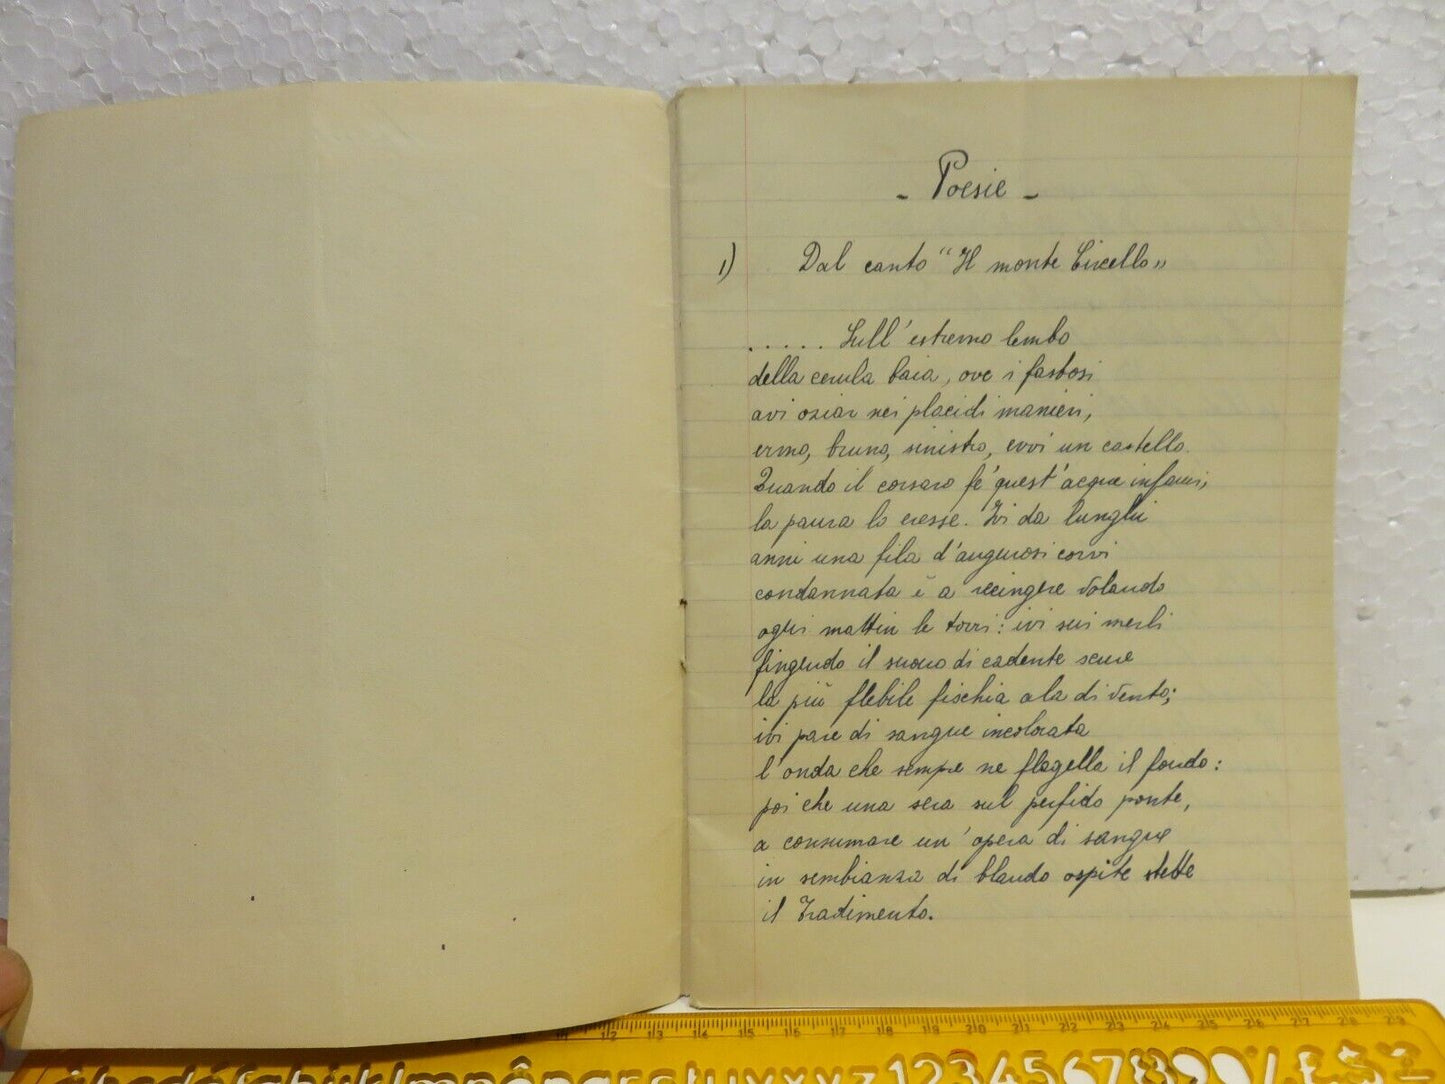 - Poesie -
1) Dal canto "Il monte Circello"
..... Sull'estremo lembo
della cerula baia, ove i fastosi
avi oziar nei placidi manieri,
ermo, bruno, sinistro, evvi un castello.
Quando il corsaro fe' quest'acque infami,
la paura lo eresse. Ivi da lunghi
anni una fila d'augurosi corvi
condannata è a recingere volando
ogni mattin le torri: ivi sui merli
fingendo il suono di cadente scure
la più flebile fischia ala di vento;
ivi pare di sangue incolorata
l'onda che sempre ne flagella il fondo:
poi che una sera sul perfido ponte,
a consumare un'opera di sangue
in sembianza di blando ospite stette
il Tradimento.
11 12 13 14 15 16 17 18 19 20 21 22 23 24 25 26 27 28 29
1234567890